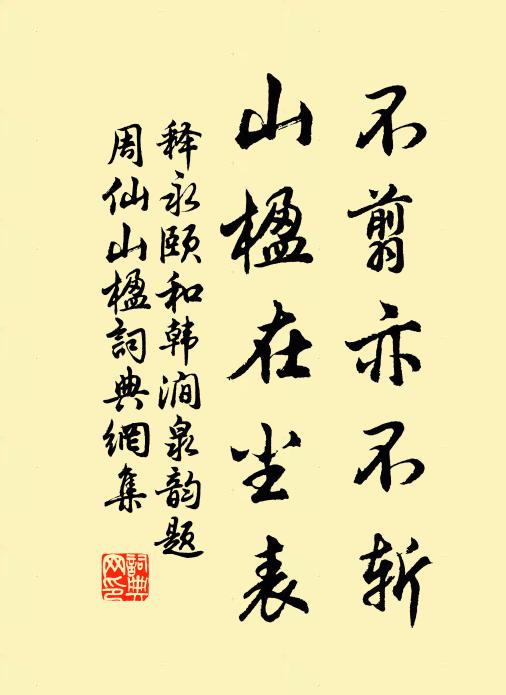 不翦亦不斩
山楹在尘表
释永颐和韩涧泉韵题
周仙山楹詞典網集
詞典網印